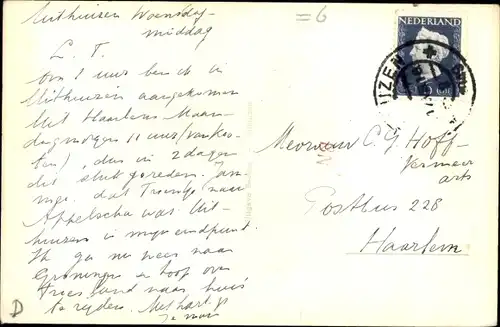 Uithuizen Woensdag-
middag
L. T.
Om 1 uur ben ik in
Uithuizen aangekomen
Uit Haarlem Maan-
dagmorgen 11 uur
ten), dus in 2 dagen
dat
dat Troentje naar
Appelscha was. Uit-
huizen is mijn eindpunt.
Ik ga nu weer naar
Groningen en hoop over
Friesland naar huis
te rijden. Met hart. gr.
Je man
=6
NEDERLAND
IJZEN
Mevrouw C. G. Hoff-
Vermeer
arts
Postbus 228
Haarlem
D